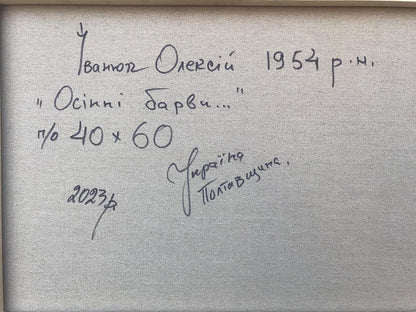 Іванюк Олексій 1954 р.н.
„Осінні барви..."
п/о 40 х 60
Україна
Полтавщина.
2023р